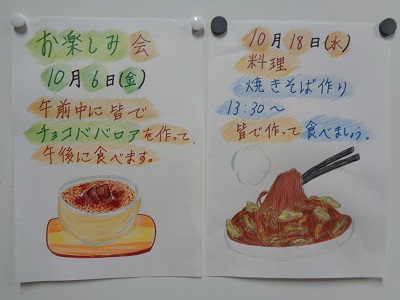 お楽しみ会
10月6日(金)
午前中に皆で
チョコババロアを作って、
午後に食べます。
10月18日(水)
料理
焼きそば作り
13:30〜
皆で作って食べましょう。